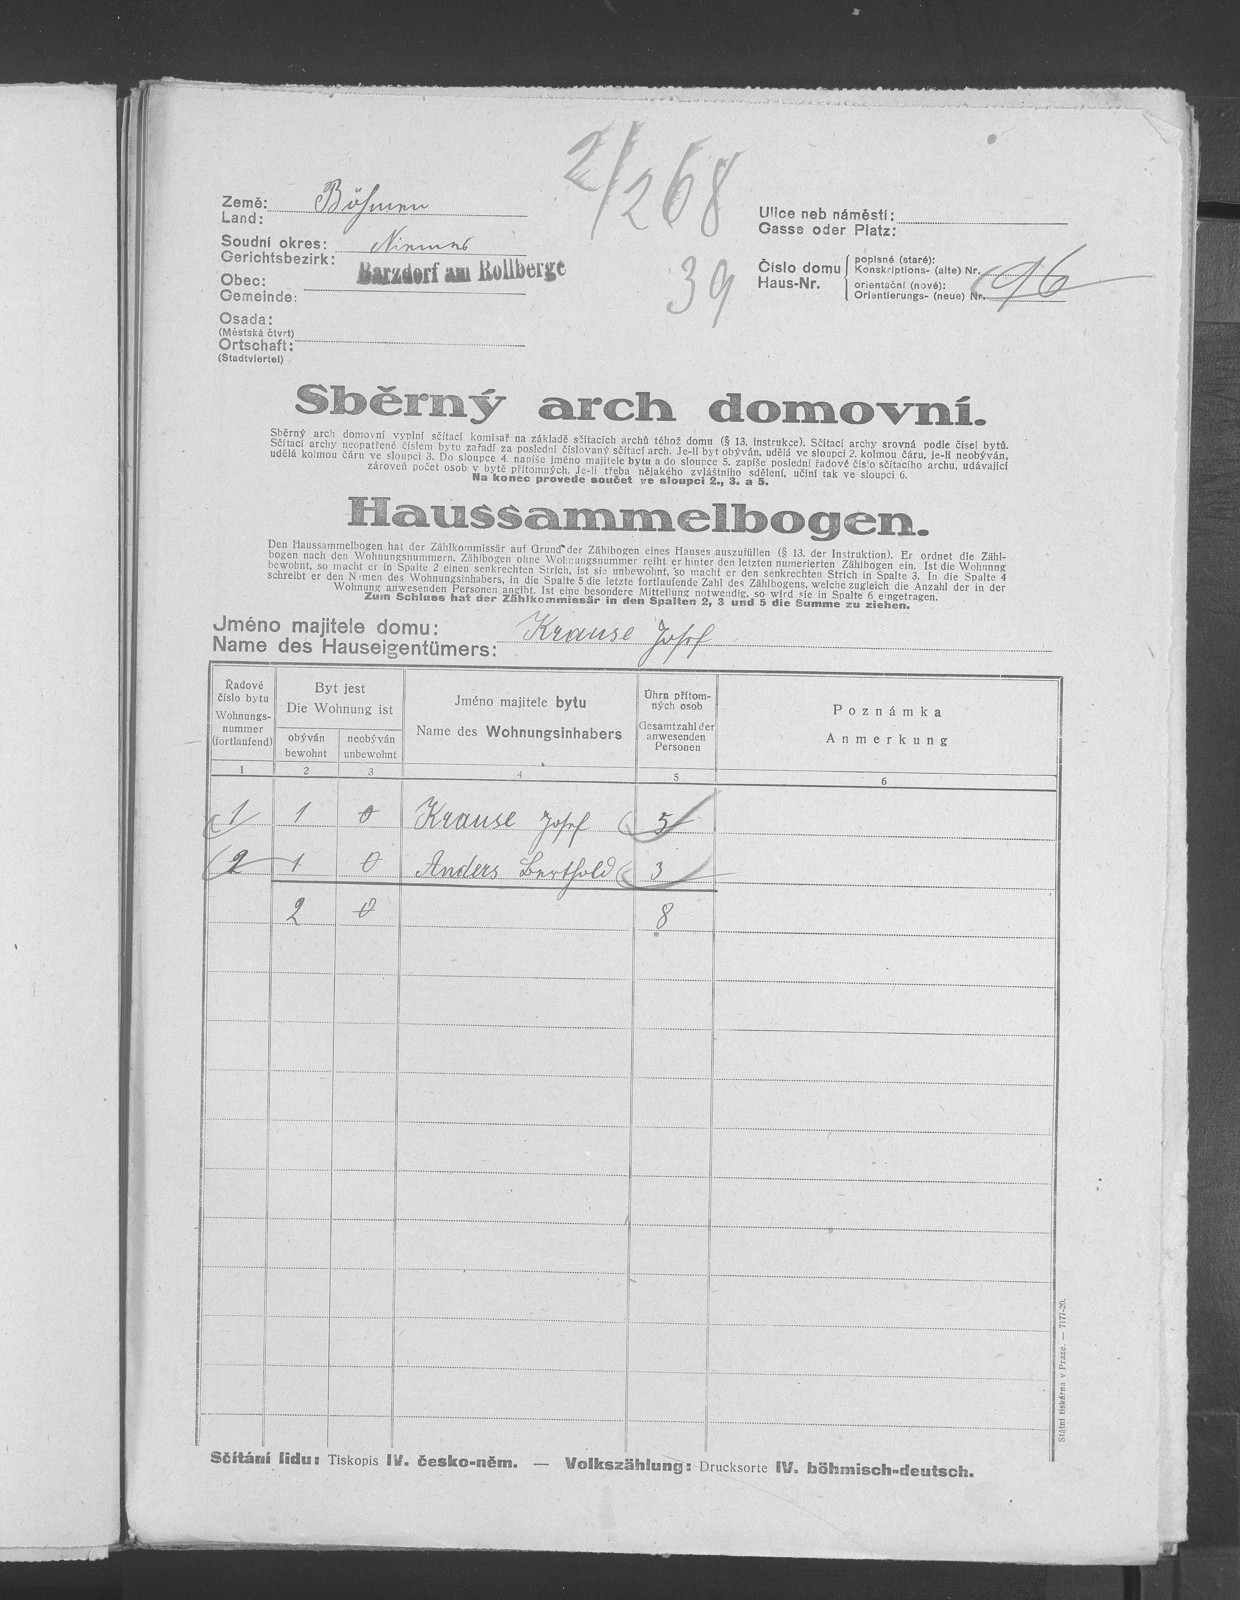 2/268
39
Země: Böhmen
Land:
Soudní okres: Niemes
Gerichtsbezirk:
Barzdorf am Rollberge
Obec:
Gemeinde:
Osada:
(Městská čtvrt)
Ortschaft:
(Stadtviertel)
Ulice neb náměstí:
Gasse oder Platz:
Číslo domu
Haus-Nr.
popisné (staré):
Konskriptions- (alte) Nr.
orientační (nové):
Orientierungs- (neue) Nr.
96
Sběrný arch domovní.
Sběrný arch domovní vyplní sčítací komisař na základě sčítacích archů téhož domu (§ 13. instrukce). Sčítací archy srovná podle čísel bytů.
Sčítací archy neopatřené číslem bytu zařadí za poslední číslovaný sčítací arch. Je-li byt obýván, udělá ve sloupci 2. kolmou čáru, je-li neobýván,
udělá kolmou čáru ve sloupci 3. Do sloupce 4. napíše jméno majitele bytu a do sloupce 5. zapíše poslední řadové číslo sčítacího archu, udávající
zároveň počet osob v bytě přítomných. Je-li třeba nějakého zvláštního sdělení, učiní tak ve sloupci 6.
Na konec provede součet ve sloupci 2., 3. a 5.
Haussammelbogen.
Den Haussammelbogen hat der Zählkommissär auf Grund der Zählbogen eines Hauses auszufüllen (§ 13. der Instruktion). Er ordnet die Zähl-
bogen nach den Wohnungsnummern. Zählbogen ohne Wohnungsnummer reiht er hinter den letzten numerierten Zählbogen ein. Ist die Wohnung
bewohnt, so macht er in Spalte 2 einen senkrechten Strich, ist sie unbewohnt, so macht er den senkrechten Strich in Spalte 3. In die Spalte 4
schreibt er den Namen des Wohnungsinhabers, in die Spalte 5 die letzte fortlaufende Zahl des Zählbogens, welche zugleich die Anzahl der in der
Wohnung anwesenden Personen angibt. Ist eine besondere Mitteilung notwendig, so wird sie in Spalte 6 eingetragen.
Zum Schluss hat der Zählkommissär in den Spalten 2, 3 und 5 die Summe zu ziehen.
Jméno majitele domu: Krause Josef
Name des Hauseigentümers:
Řadové
číslo bytu
Wohnungs-
nummer
(fortlaufend)
Byt jest
Die Wohnung ist
obýván
bewohnt
neobýván
unbewohnt
Jméno majitele bytu
Name des Wohnungsinhabers
Úhrn přítom-
ných osob
Gesamtzahl der
anwesenden
Personen
Poznámka
Anmerkung
1 2 3 4 5 6
1 1 0 Krause Josef 5
2 1 0 Anders Berthold 3
2 0 8
Sčítání lidu: Tiskopis IV. česko-něm. — Volkszählung: Drucksorte IV. böhmisch-deutsch.
Státní tiskárna v Praze. — 7177-20.